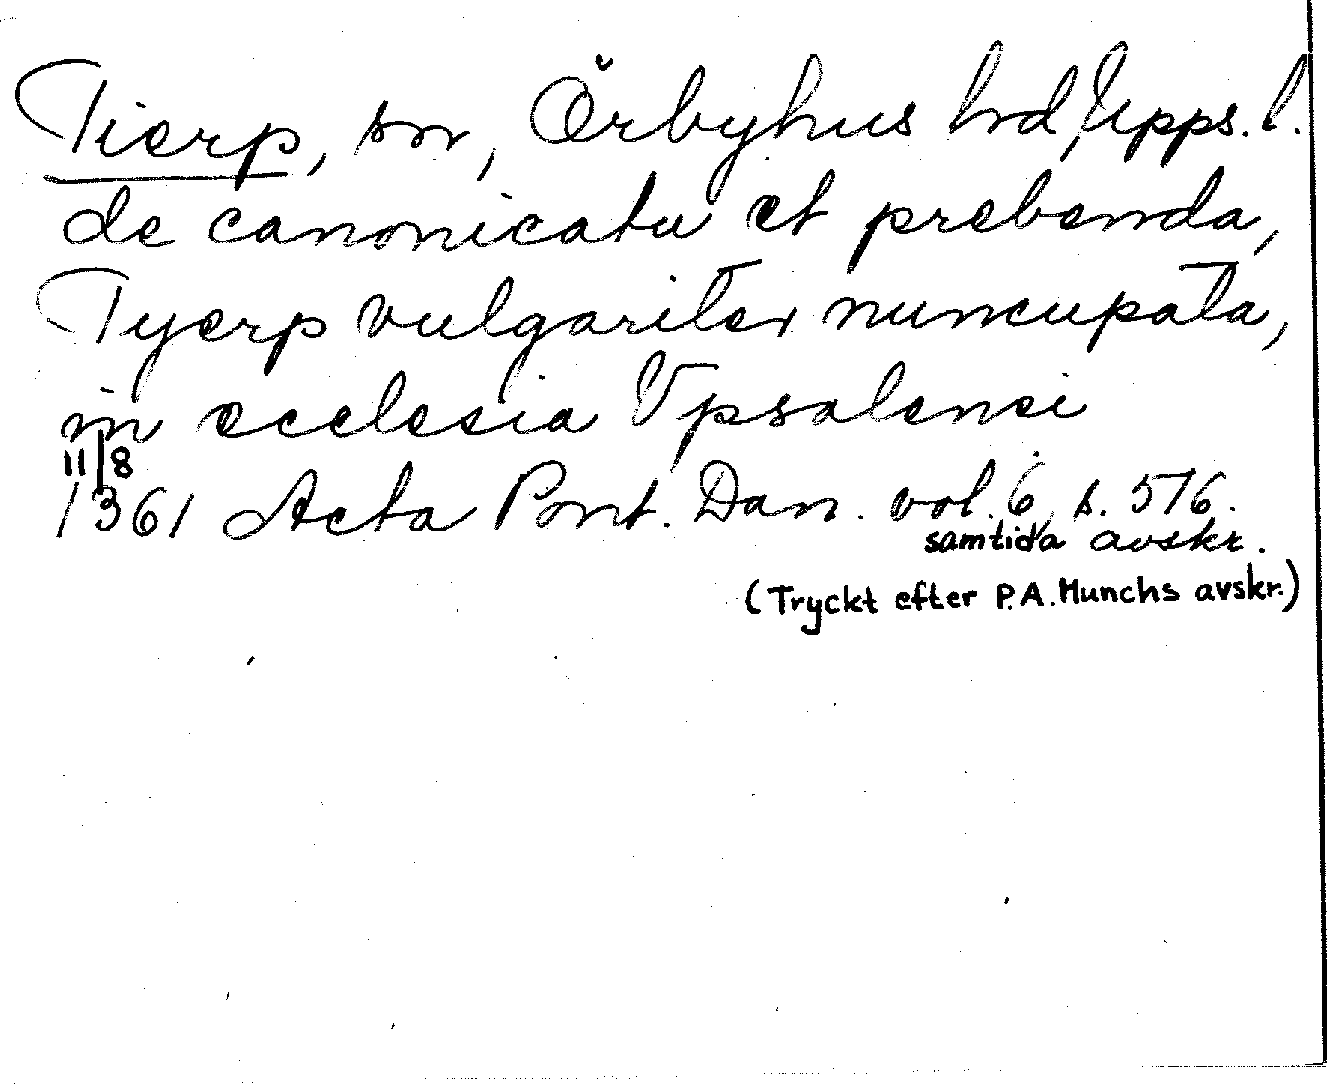 Tierp, sn, Örbyhus hd, Upps. l.
de canonicatu et prebenda,
Tyerp vulgariter nuncupata,
in ecclesia Vpsalensi
11/8
1361 Acta Pont. Dan. vol. 6, s. 576.
samtida avskr.
(Tryckt efter P.A. Munchs avskr.)